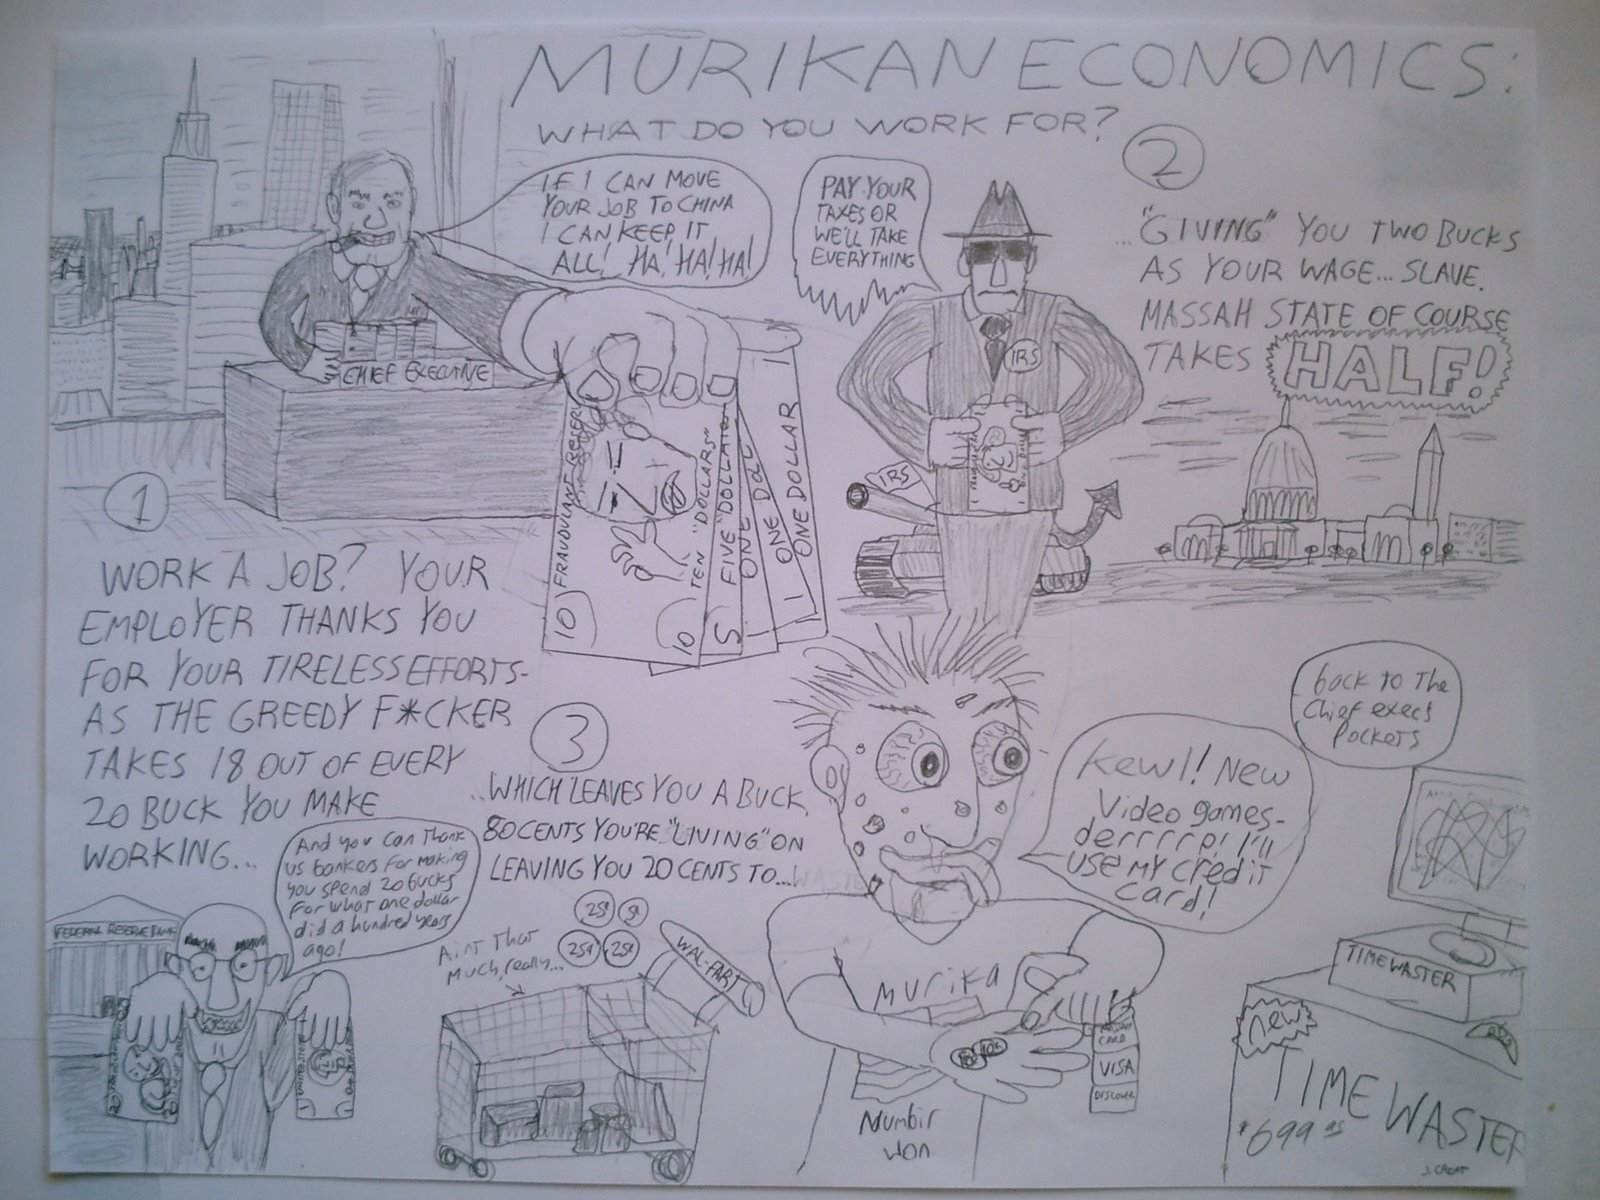 MURIKAN ECONOMICS:
WHAT DO YOU WORK FOR?
IF I CAN MOVE
YOUR JOB TO CHINA
I CAN KEEP IT
ALL! HA! HA! HA!
CHIEF EXECUTIVE
10
FRAUDULENT RESERVE
TEN "DOLLARS"
10
FIVE "DOLLARS"
5
ONE DOLL
ONE DOLLAR
1
ONE DOLLAR
1
1
WORK A JOB? YOUR
EMPLOYER THANKS YOU
FOR YOUR TIRELESS EFFORTS-
AS THE GREEDY F*CKER
TAKES 18 OUT OF EVERY
20 BUCK YOU MAKE
WORKING...
And you can thank
us bankers for making
you spend 20 bucks
for what one dollar
did a hundred years
ago!
FEDERAL RESERVE BANK
PAY YOUR
TAXES OR
WE'LL TAKE
EVERYTHING
IRS
IRS
2
..."GIVING" YOU TWO BUCKS
AS YOUR WAGE... SLAVE.
MASSAH STATE OF COURSE
TAKES HALF!
3
..WHICH LEAVES YOU A BUCK,
80 CENTS YOU'RE "LIVING" ON
LEAVING YOU 20 CENTS TO...
25¢ 5¢
25¢ 25¢
Aint That
Much, really...
WAL-FART
Kewl! New
Video games-
derrrrrp! I'll
use MY credit
card!
back to The
Chief exec's
Pockets
Murika
10¢ 10¢
CARD
VISA
DISCOVER
Numbir
Won
TIMEWASTER
New
TIMEWASTER
$699.95